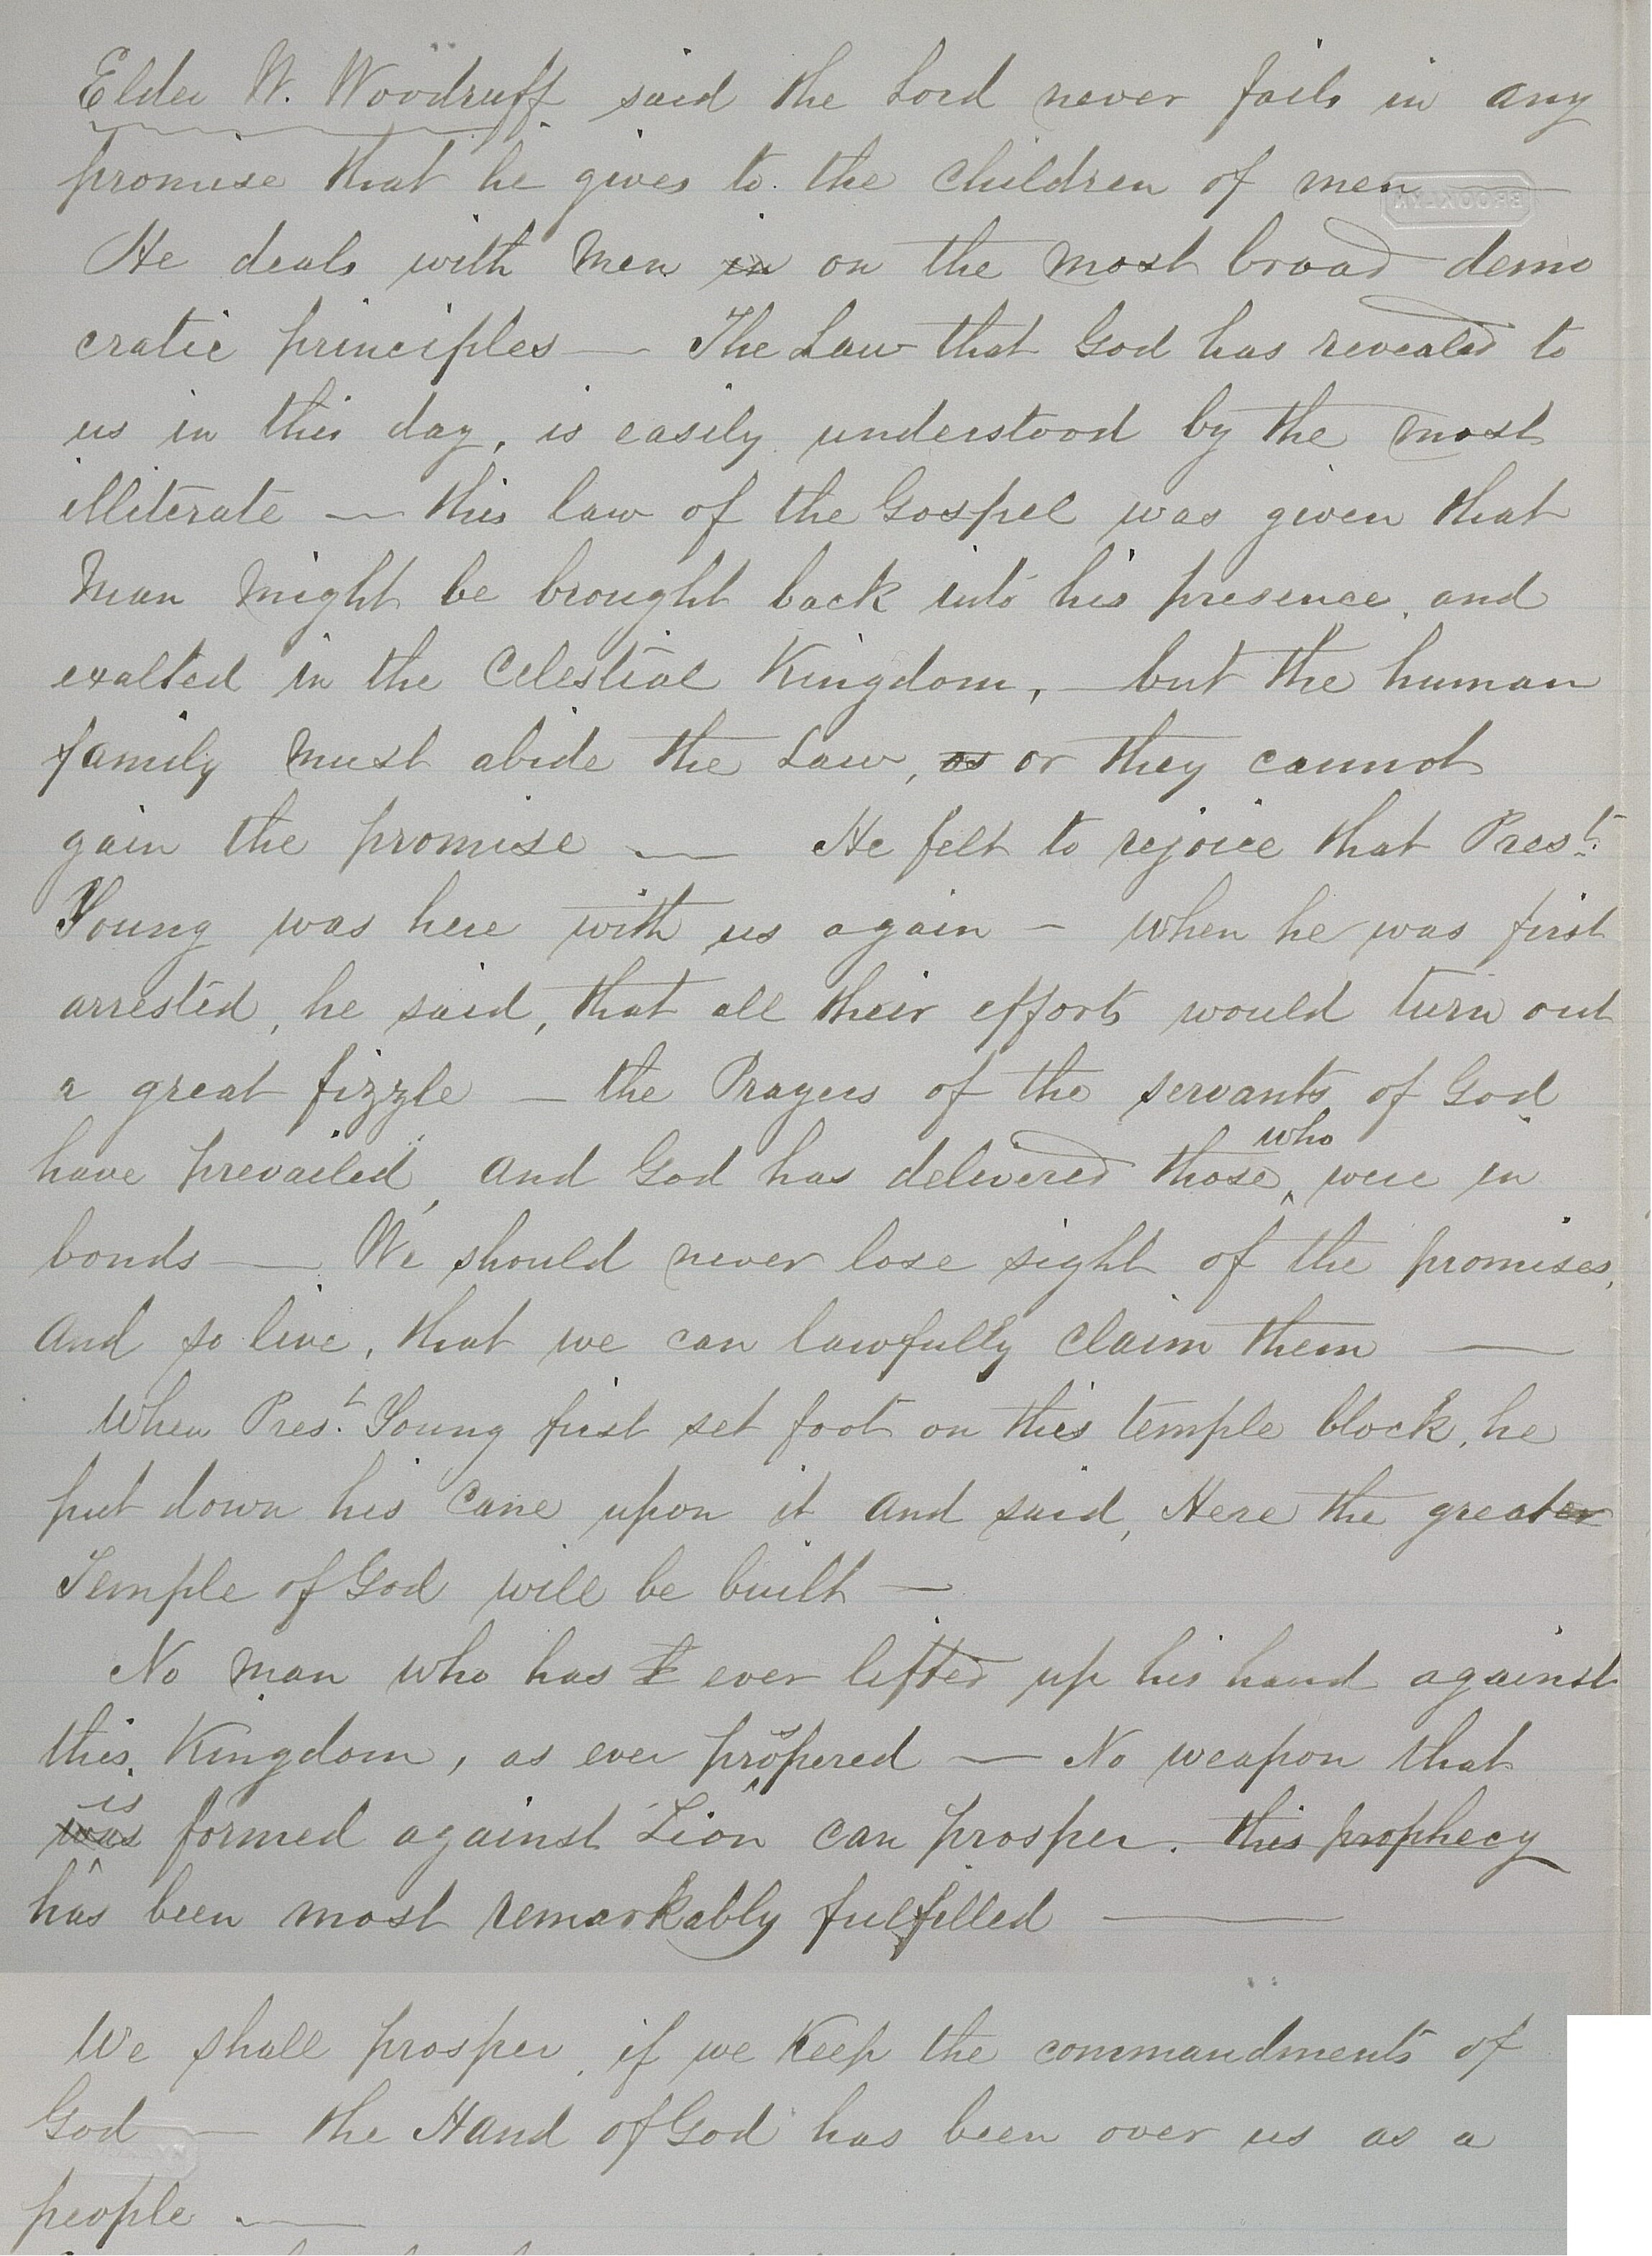 Elder W. Woodruff said the Lord never fails in any
promise that he gives to the children of men —
BROOKLYN
He deals with men in on the most broad demo
cratic principles — The Law that God has revealed to
us in this day, is easily understood by the most
illiterate — this law of the Gospel was given that
Man might be brought back into his presence, and
exalted in the Celestial Kingdom, — but the human
family must abide the Law, as or they cannot
gain the promise — He felt to rejoice that Pres.t
Young was here with us again — when he was first
arrested, he said, that all their efforts would turn out
a great fizzle — the Prayers of the servants of God
have prevailed, and God has delivered those who were in
bonds — We should never lose sight of the promises,
And so live, that we can lawfully claim them —
When Pres.t Young first set foot on this temple block, he
put down his cane upon it and said, Here the greater
Temple of God will be built —
No man who has ever lifted up his hand against
this Kingdom, as ever prospered — No weapon that
was is formed against Zion can prosper. this prophecy
has been most remarkably fulfilled —
We shall prosper, if we Keep the commandments of
God — the Hand of God has been over us as a
people —